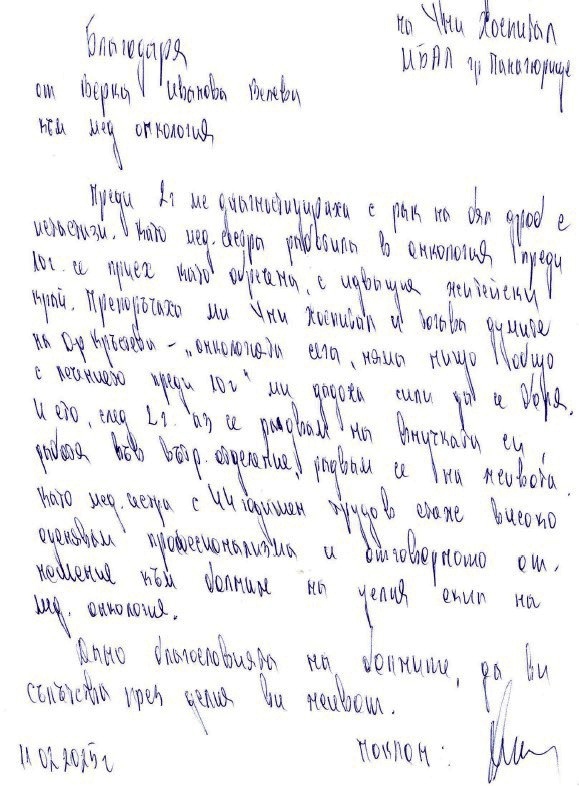 на Уни Хоспитал
МБАЛ гр Панагюрище
Благодаря
от Верка Иванова Велева
към мед онкология
Преди 2г ме диагностицираха с рак на бял дроб с
метастази. Като мед. сестра работила в онкология преди
10г. се приех като обречена, с идващия житейски
край. Препоръчаха ми Уни Хоспитал и тогава думите
на Д-р Кръстева - „онкологията сега, няма нищо общо
с лечението преди 10г" ми дадоха сили да се боря.
И ето, след 2г. аз се радвам на внучката си,
работя във вътр. отделение, радвам се на живота.
Като мед. сестра с 44 годишен трудов стаж високо
оценявам професионализма и отговорното от-
ношение към болния на целия екип на
мед. онкология.
Дано благословията на болните, да ви
съпътства през целия ви живот.
11.02.2025г
Поклон: